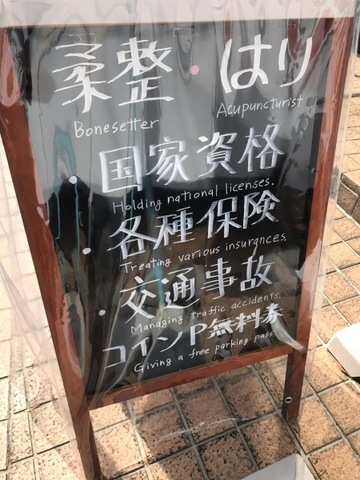 柔整・はり
Bonesetter Acupuncturist
・国家資格
Holding national licenses.
・各種保険
Treating various insurances.
・交通事故
Managing traffic accidents.
コインP無料券
Giving a free parking pass.